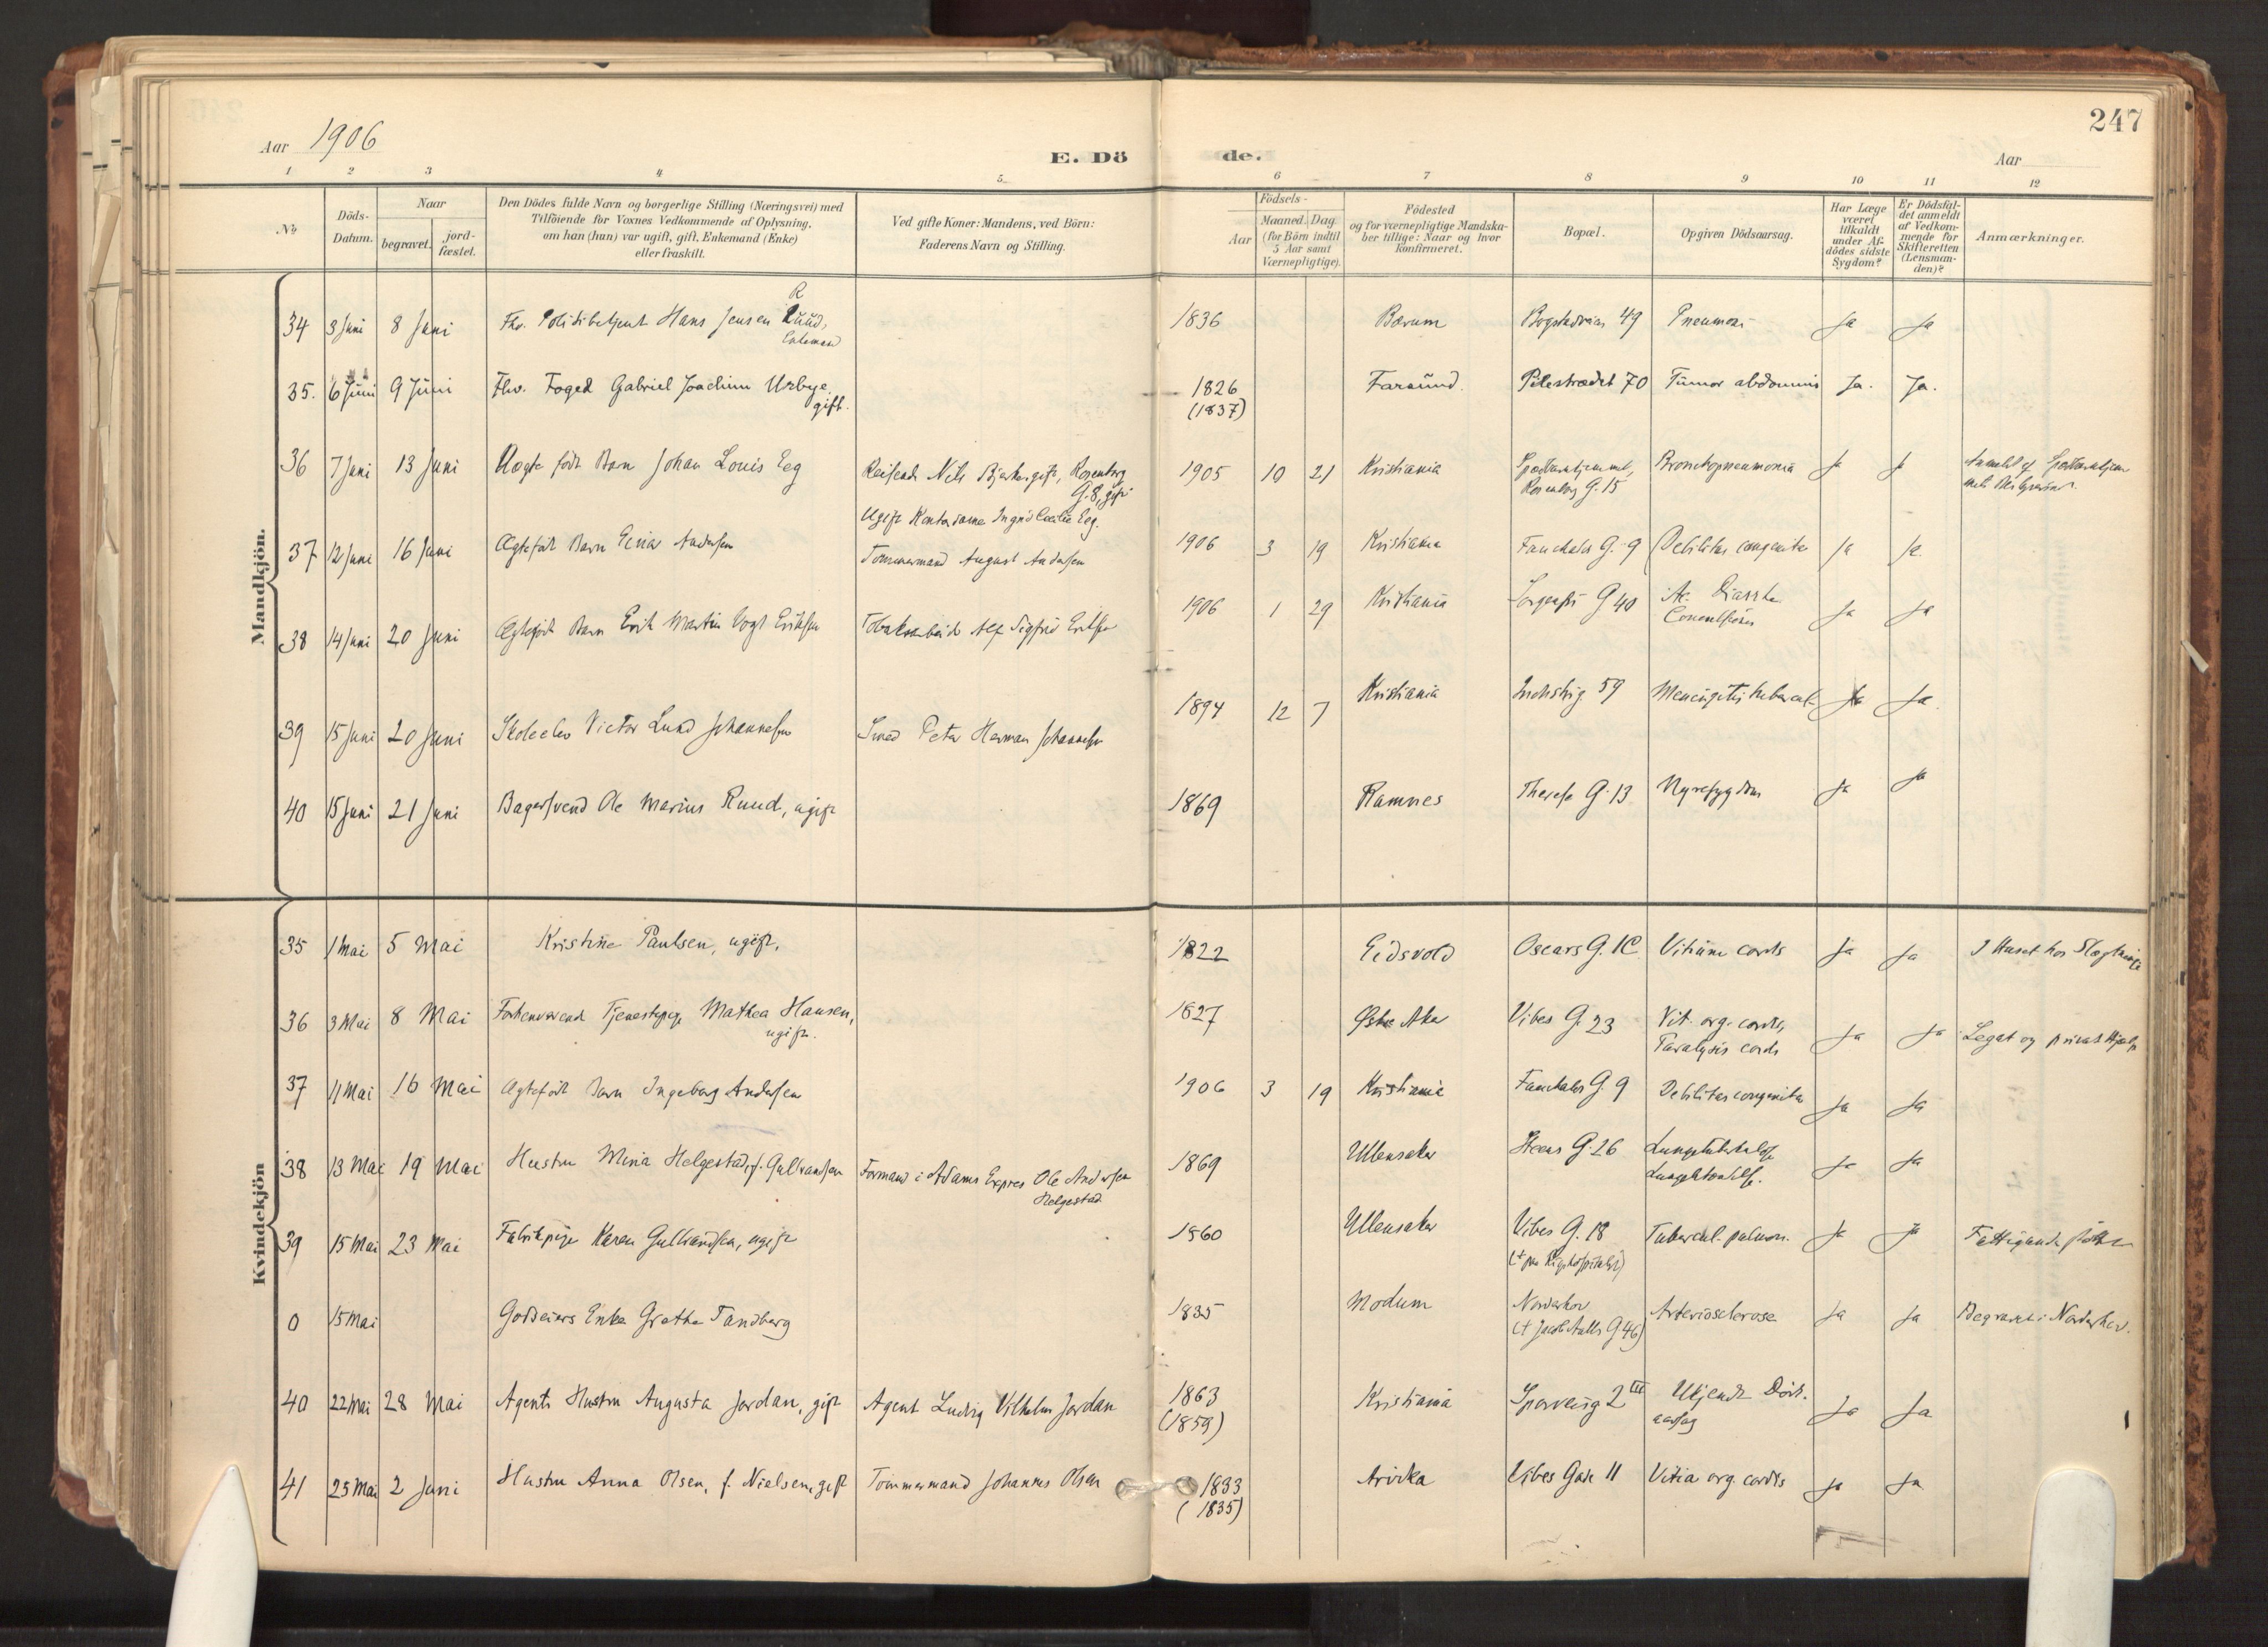 247
Aar 1906
E. Dö de.
Aar
1 2 3 4 5 6 7 8 9 10 11 12
No
Döds-Datum.
Naar
begravet.
jord-fæstet.
Den Dödes fulde Navn og borgerlige Stilling (Næringsvei) med
Tilföiende for Voxnes Vedkommende af Oplysning,
om han (hun) var ugift, gift, Enkemand (Enke)
eller fraskilt.
Ved gifte Koner: Mandens, ved Börn:
Faderens Navn og Stilling.
Födsels-
Aar
Maaned. Dag.
(for Börn indtil
5 Aar samt
Værnepligtige).
Födested
og for værnepligtige Mandska-
ber tillige: Naar og hvor
konfirmeret.
Bopæl.
Opgiven Dödsaarsag.
Har Læge
været
tilkaldt
under Af-
dödes sidste
Sygdom?
Er Dödsfal-
det anmeldt
af Vedkom-
mende for
Skifteretten
(Lensman-
den)?
Anmærkninger.
Mandkjön.
R
34 3 Juni 8 Juni Fhv. Politibetjent Hans Jensen Ruud, 1836 Bærum Bogstadveien 49 Pneumoni Ja Ja
Enkemand
35. 6 Juni 9 Juni Fhv. Foged Gabriel Joachim Urbye 1826 Farsund. Pilestrædet 70 Tumor abdominis Ja. Ja.
gift. (1837)
36 7 Juni 13 Juni Uægte født Barn Johan Louis Eeg Reisende Nils Bjerke, gift, Rosenborg 1905 10 21 Kristiania Spædbarnhjemmet, Bronchopneumonia Ja Ja
G. 8, gift Rosenborg G. 15
Ugift Kontordame Ingrid Cecilie Eeg.
37 12 Juni 16 Juni Ægtefødt Barn Einar Andersen Tømmermand August Andersen 1906 3 19 Kristiania Fauchalds G. 9 Debilitas congenita Ja Ja.
38 14 Juni 20 Juni Ægtefødt Barn Erik Martin Vogt Eriksen Tobaksarbeider Alf Sigfrid Eriksen 1906 1 29 Kristiania Sorgenfri G 40 Ac. Diarrhe Ja Ja
39 15 Juni 20 Juni Skoleelev Victor Lund Johannesen Smed Peter Herman Johannesen 1894 12 7 Kristiania Industrig 59 Meningitis tubercul. Ja Ja.
40 15 Juni 21 Juni Bagersvend Ole Marius Ruud, ugift 1869 Ramnes Therese G. 13 Nyresygdom Ja Ja
Kvindekjön
35 1 Mai 5 Mai Kristine Paulsen, ugift, 1822 Eidsvold Oscars G. 1C Vitium cordis Ja Ja I Huset hos Slægtninge
36 3 Mai 8 Mai Forhenværende Tjenestepige Mathea Hansen, 1827 Østre Aker Vibes G. 23 Vit. org. cordis, Ja Ja Legat og privat Hjælp
ugift. Paralysis cordis
37 11 Mai 16 Mai Ægtefødt Barn Ingeborg Andersen 1906 3 19 Kristiania Fauchalds G. 9 Debilitas congenita Ja Ja
38 13 Mai 19 Mai Hustru Mina Helgestad, f. Gulbrandsen Formand i Adams Expres Ole Andersen 1869 Ullensaker Steens G. 26 Lungetuberkulose Ja Ja
Helgestad
39 15 Mai 23 Mai Fabrikpige Karen Gulbrandsen, ugift 1860 Ullensaker Vibes G. 18 Tubercul. pulmon. Ja Ja Fattigunderstøttelse
(+ paa Rigshospitalet)
0 15 Mai Godseiers Enke Grethe Tandberg 1835 Modum Norderhov Arteriosclerose Ja Ja Begravet i Norderhov.
(+ Jacob Aalls G 46)
40 22 Mai 28 Mai Agents Hustru Augusta Jordan, gift Agent Ludvig Vilhelm Jordan 1863 Kristiania Sporveisg 2 III Ukjendt Døds- Ja Ja
(1859) aarsag
41 25 Mai 2 Juni Hustru Anna Olsen, f. Nielsen, gift Tømmermand Johannes Olsen 1833 Arvika Vibes Gade 11 Vitia org. cordis Ja Ja
(1835)